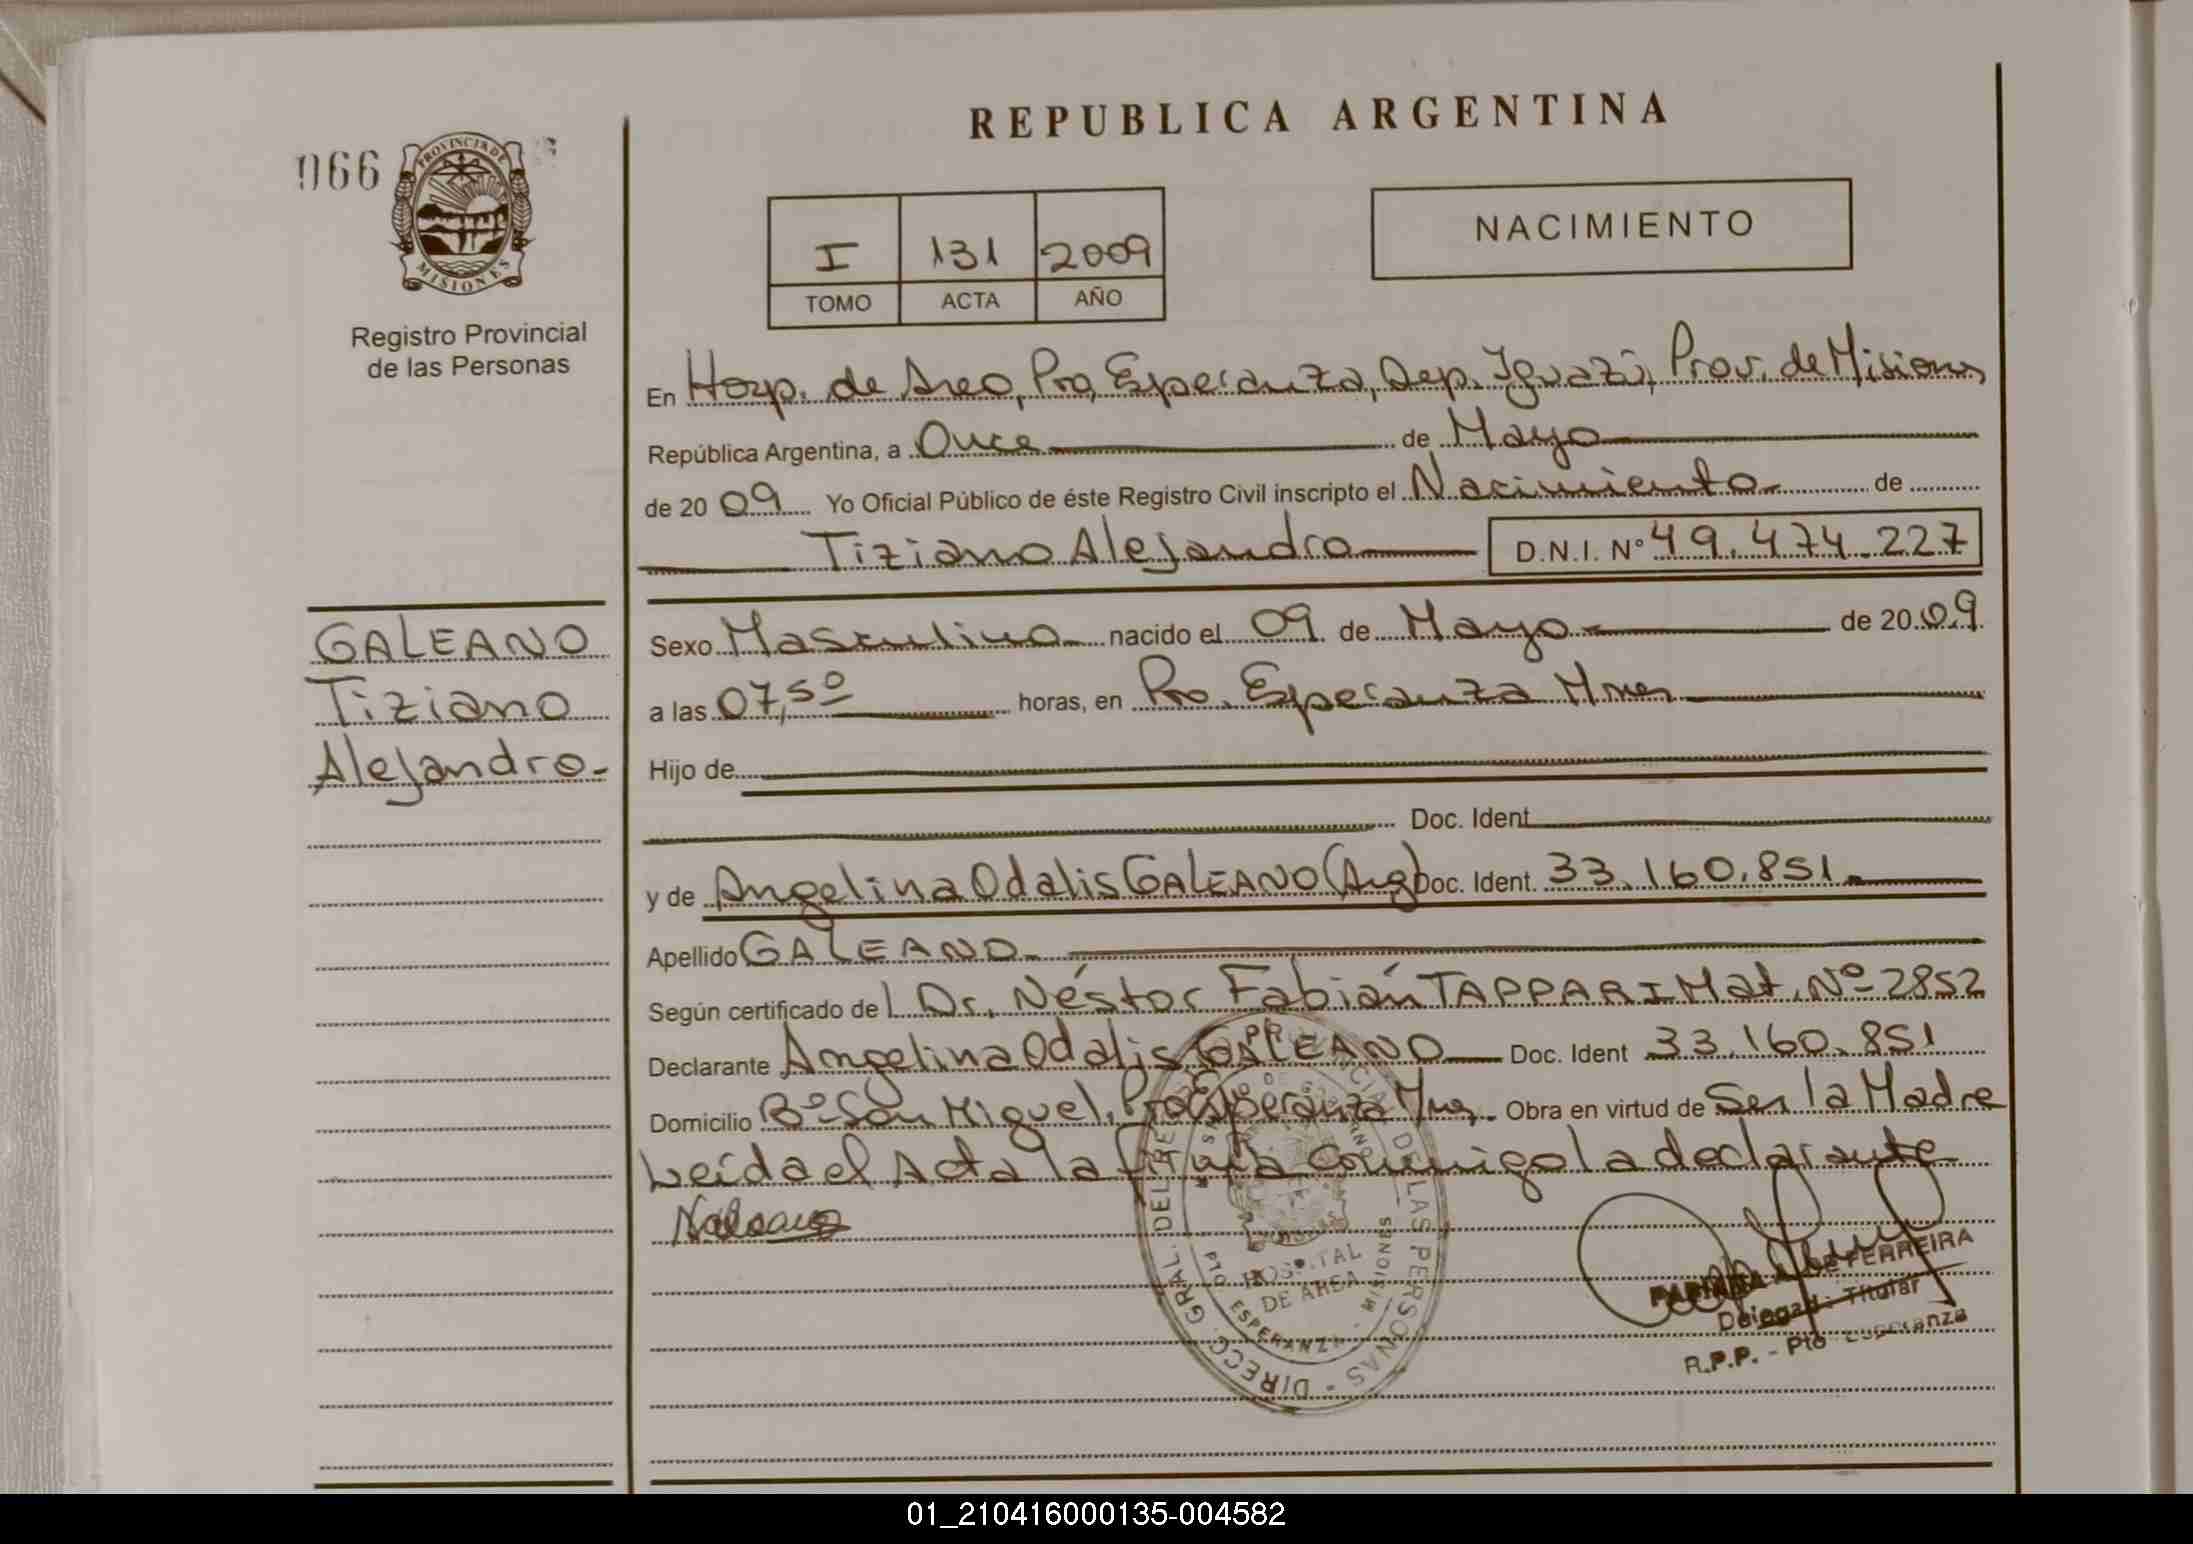 REPUBLICA ARGENTINA
066
PROVINCIA DE
MISIONES
Registro Provincial
de las Personas
I 131 2009
TOMO ACTA AÑO
NACIMIENTO
En Hosp. de Area, Pto, Esperanza, Dep. Iguazú, Prov. de Misiones
República Argentina, a Once de Mayo
de 20 09 Yo Oficial Público de éste Registro Civil inscripto el Nacimiento de
Tiziano Alejandro D.N.I. N° 49.474.227
GALEANO
Tiziano
Alejandro.-
Sexo Masculino nacido el 09 de Mayo de 20 09
a las 07,50 horas, en Pto. Esperanza Mnes
Hijo de
Doc. Ident
y de Angelina Odalis GALEANO (Arg) Doc. Ident. 33.160.851.
Apellido GALEANO.
Según certificado de l Dr. Néstor Fabián TAPPARI Mat. Nº 2852
Declarante Angelina Odalis GALEANO Doc. Ident 33.160.851
Domicilio Bº San Miguel, Pto Esperanza Mnes. Obra en virtud de Ser la Madre
Leída el Acta la firma conmigo la declarante
HOSPITAL
DE AREA
ESPERANZA - MISIONES
DIRECC. GRAL. DEL RE DE LAS PERSONAS
DE FERREIRA
Titular
R.P.P. - Pto Esperanza
01_210416000135-004582